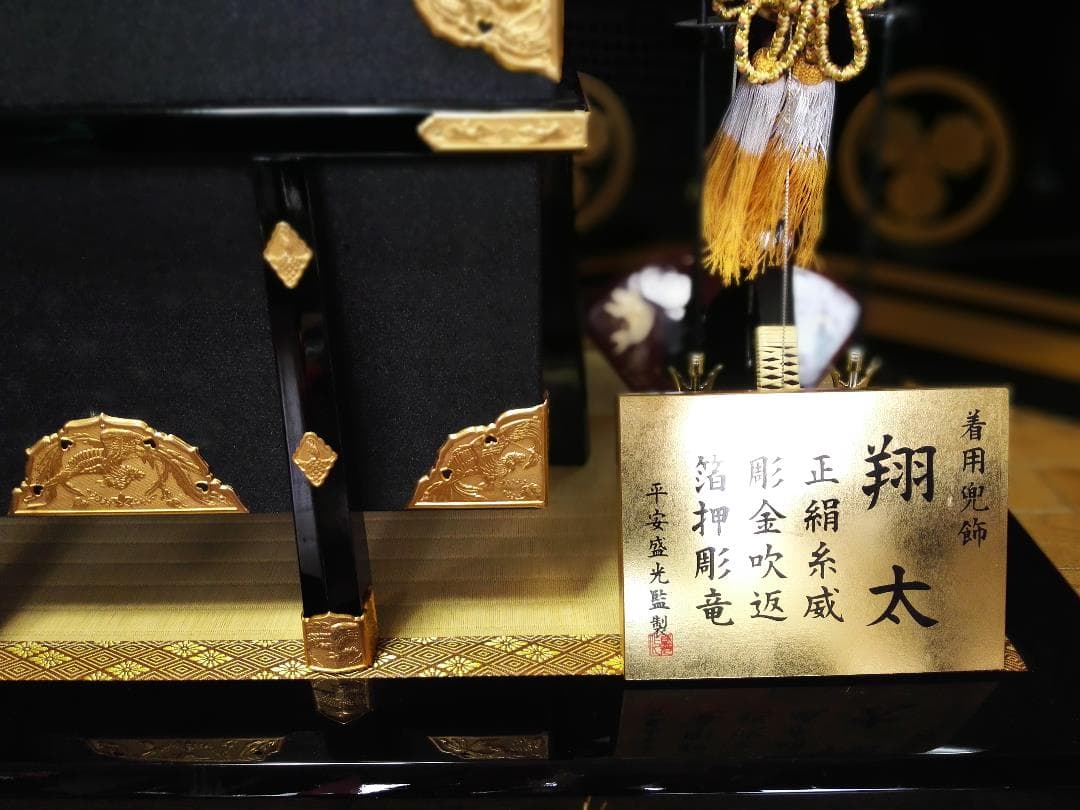 着用兜飾
翔太
正絹糸威
彫金吹返
箔押彫竜
平安盛光監製